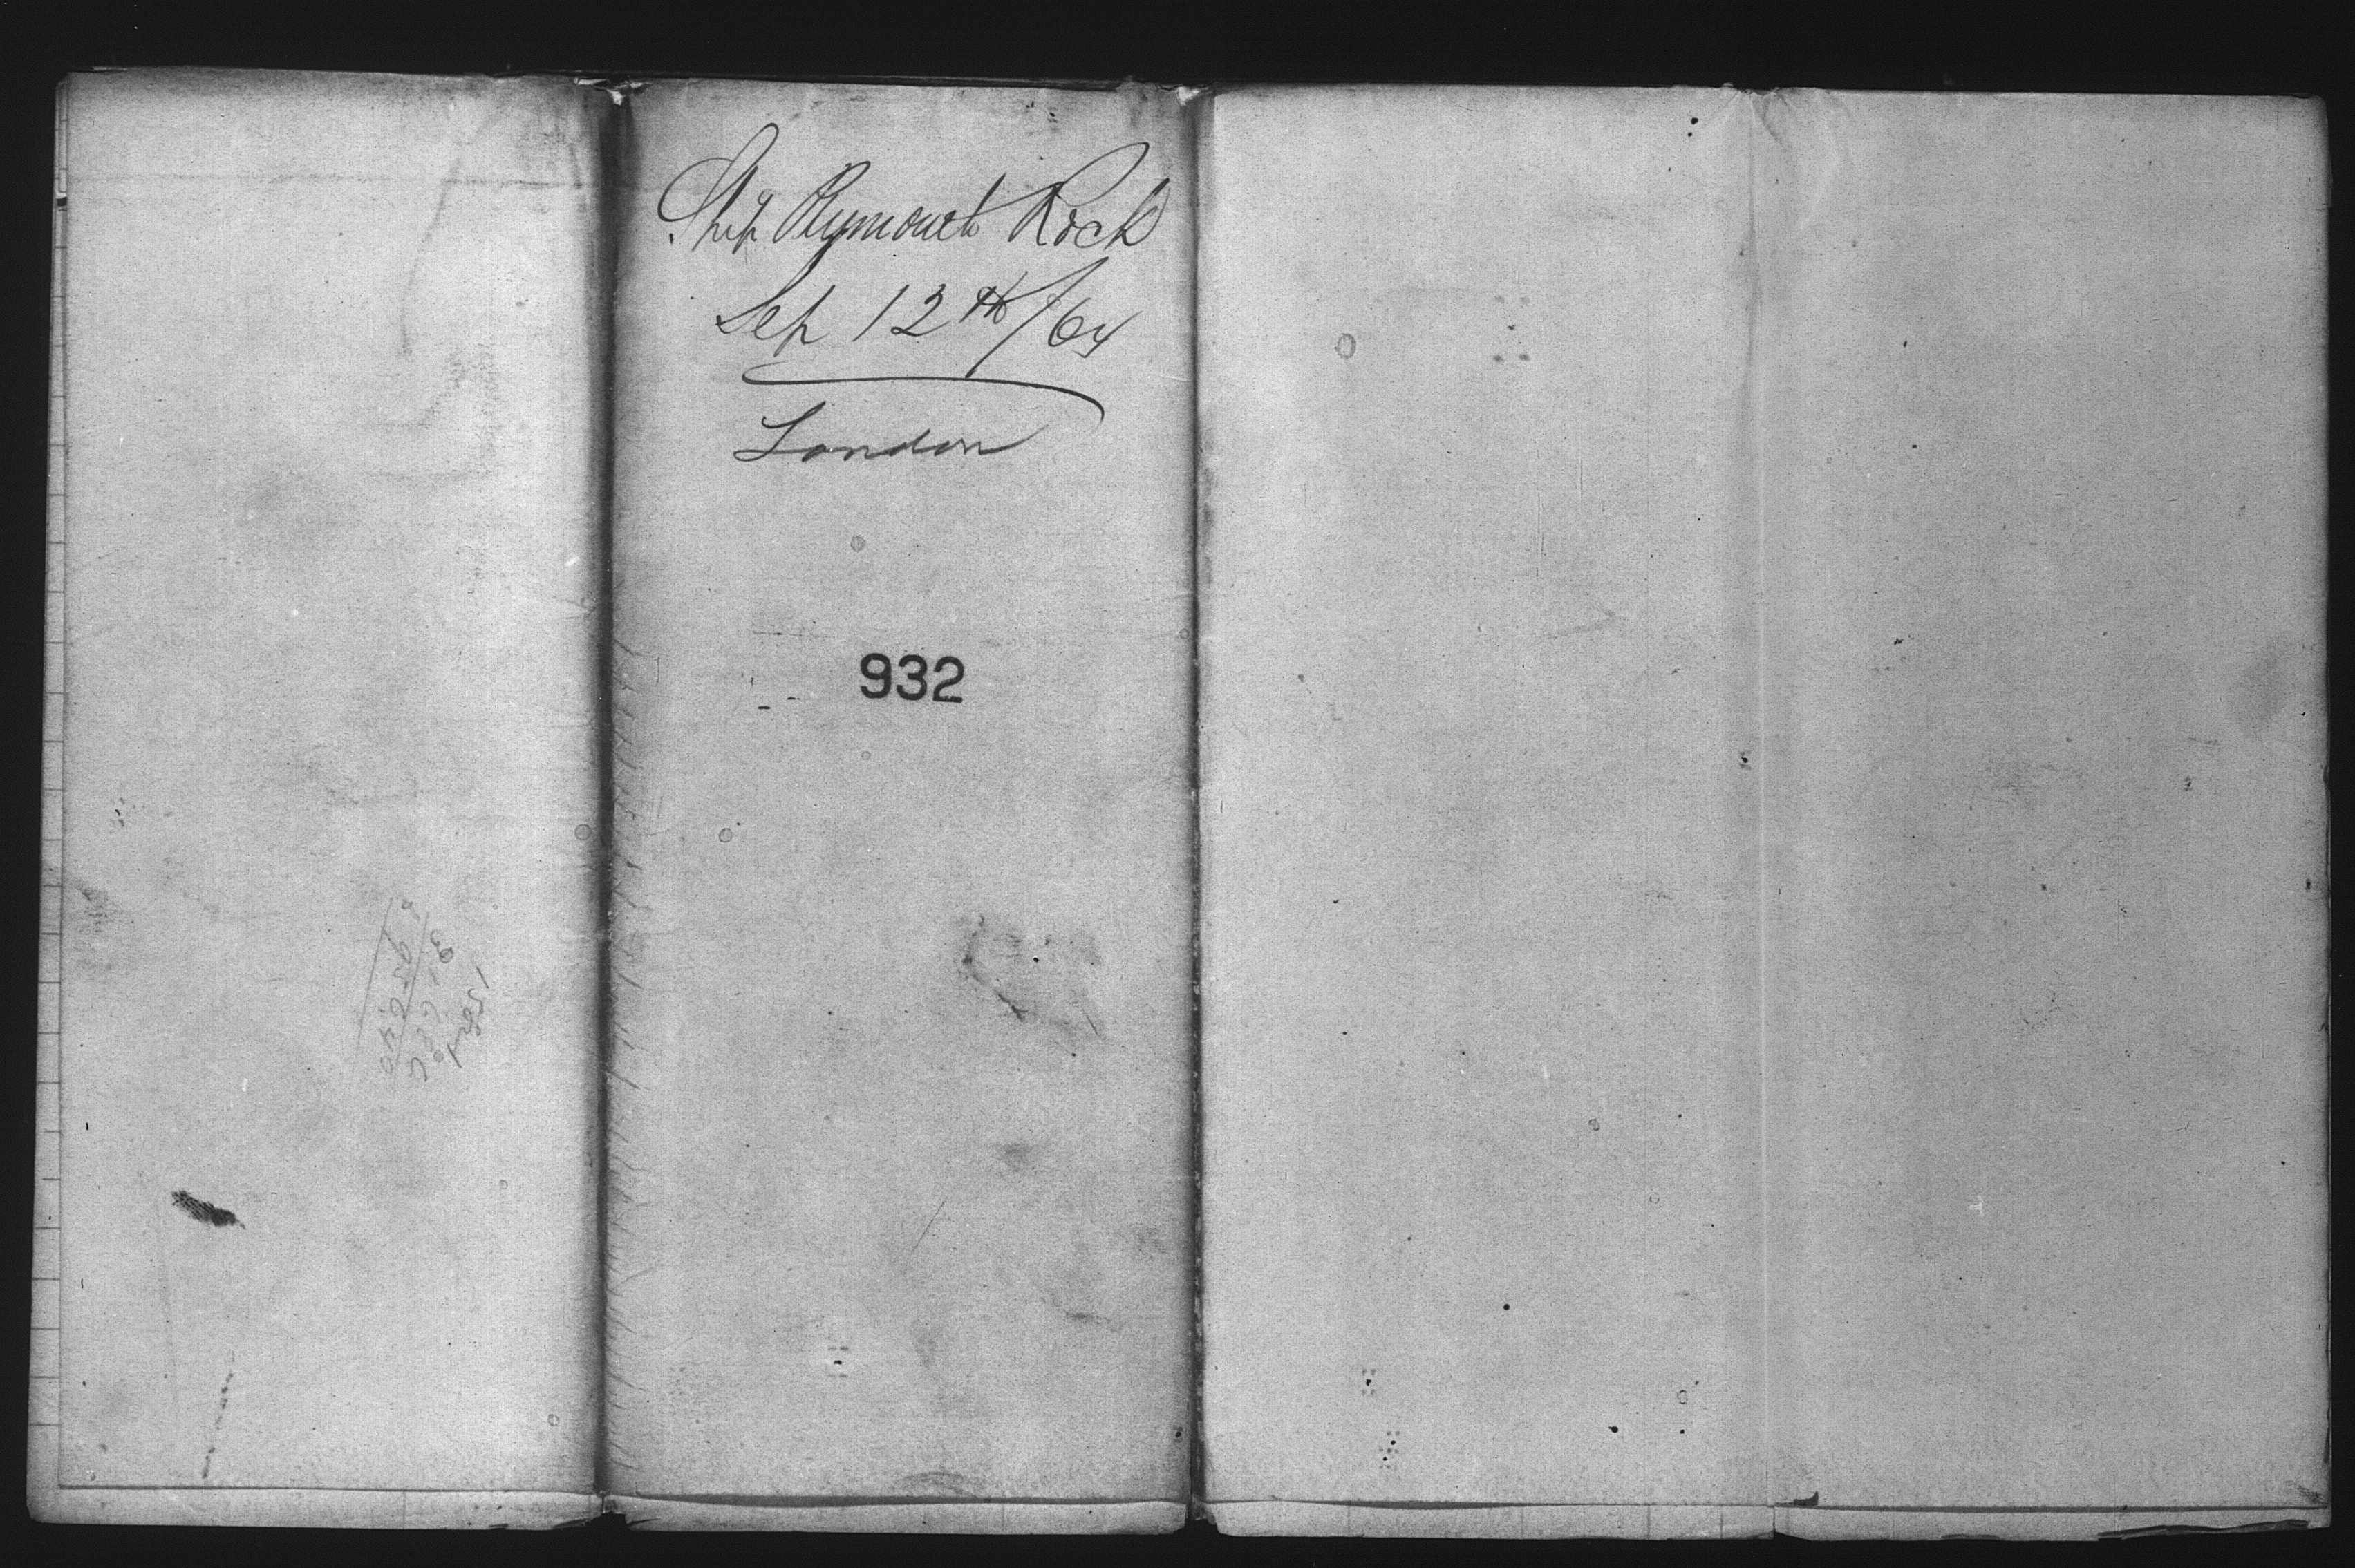 Ship Plymouth Rock
Sep 12th/64
London
932